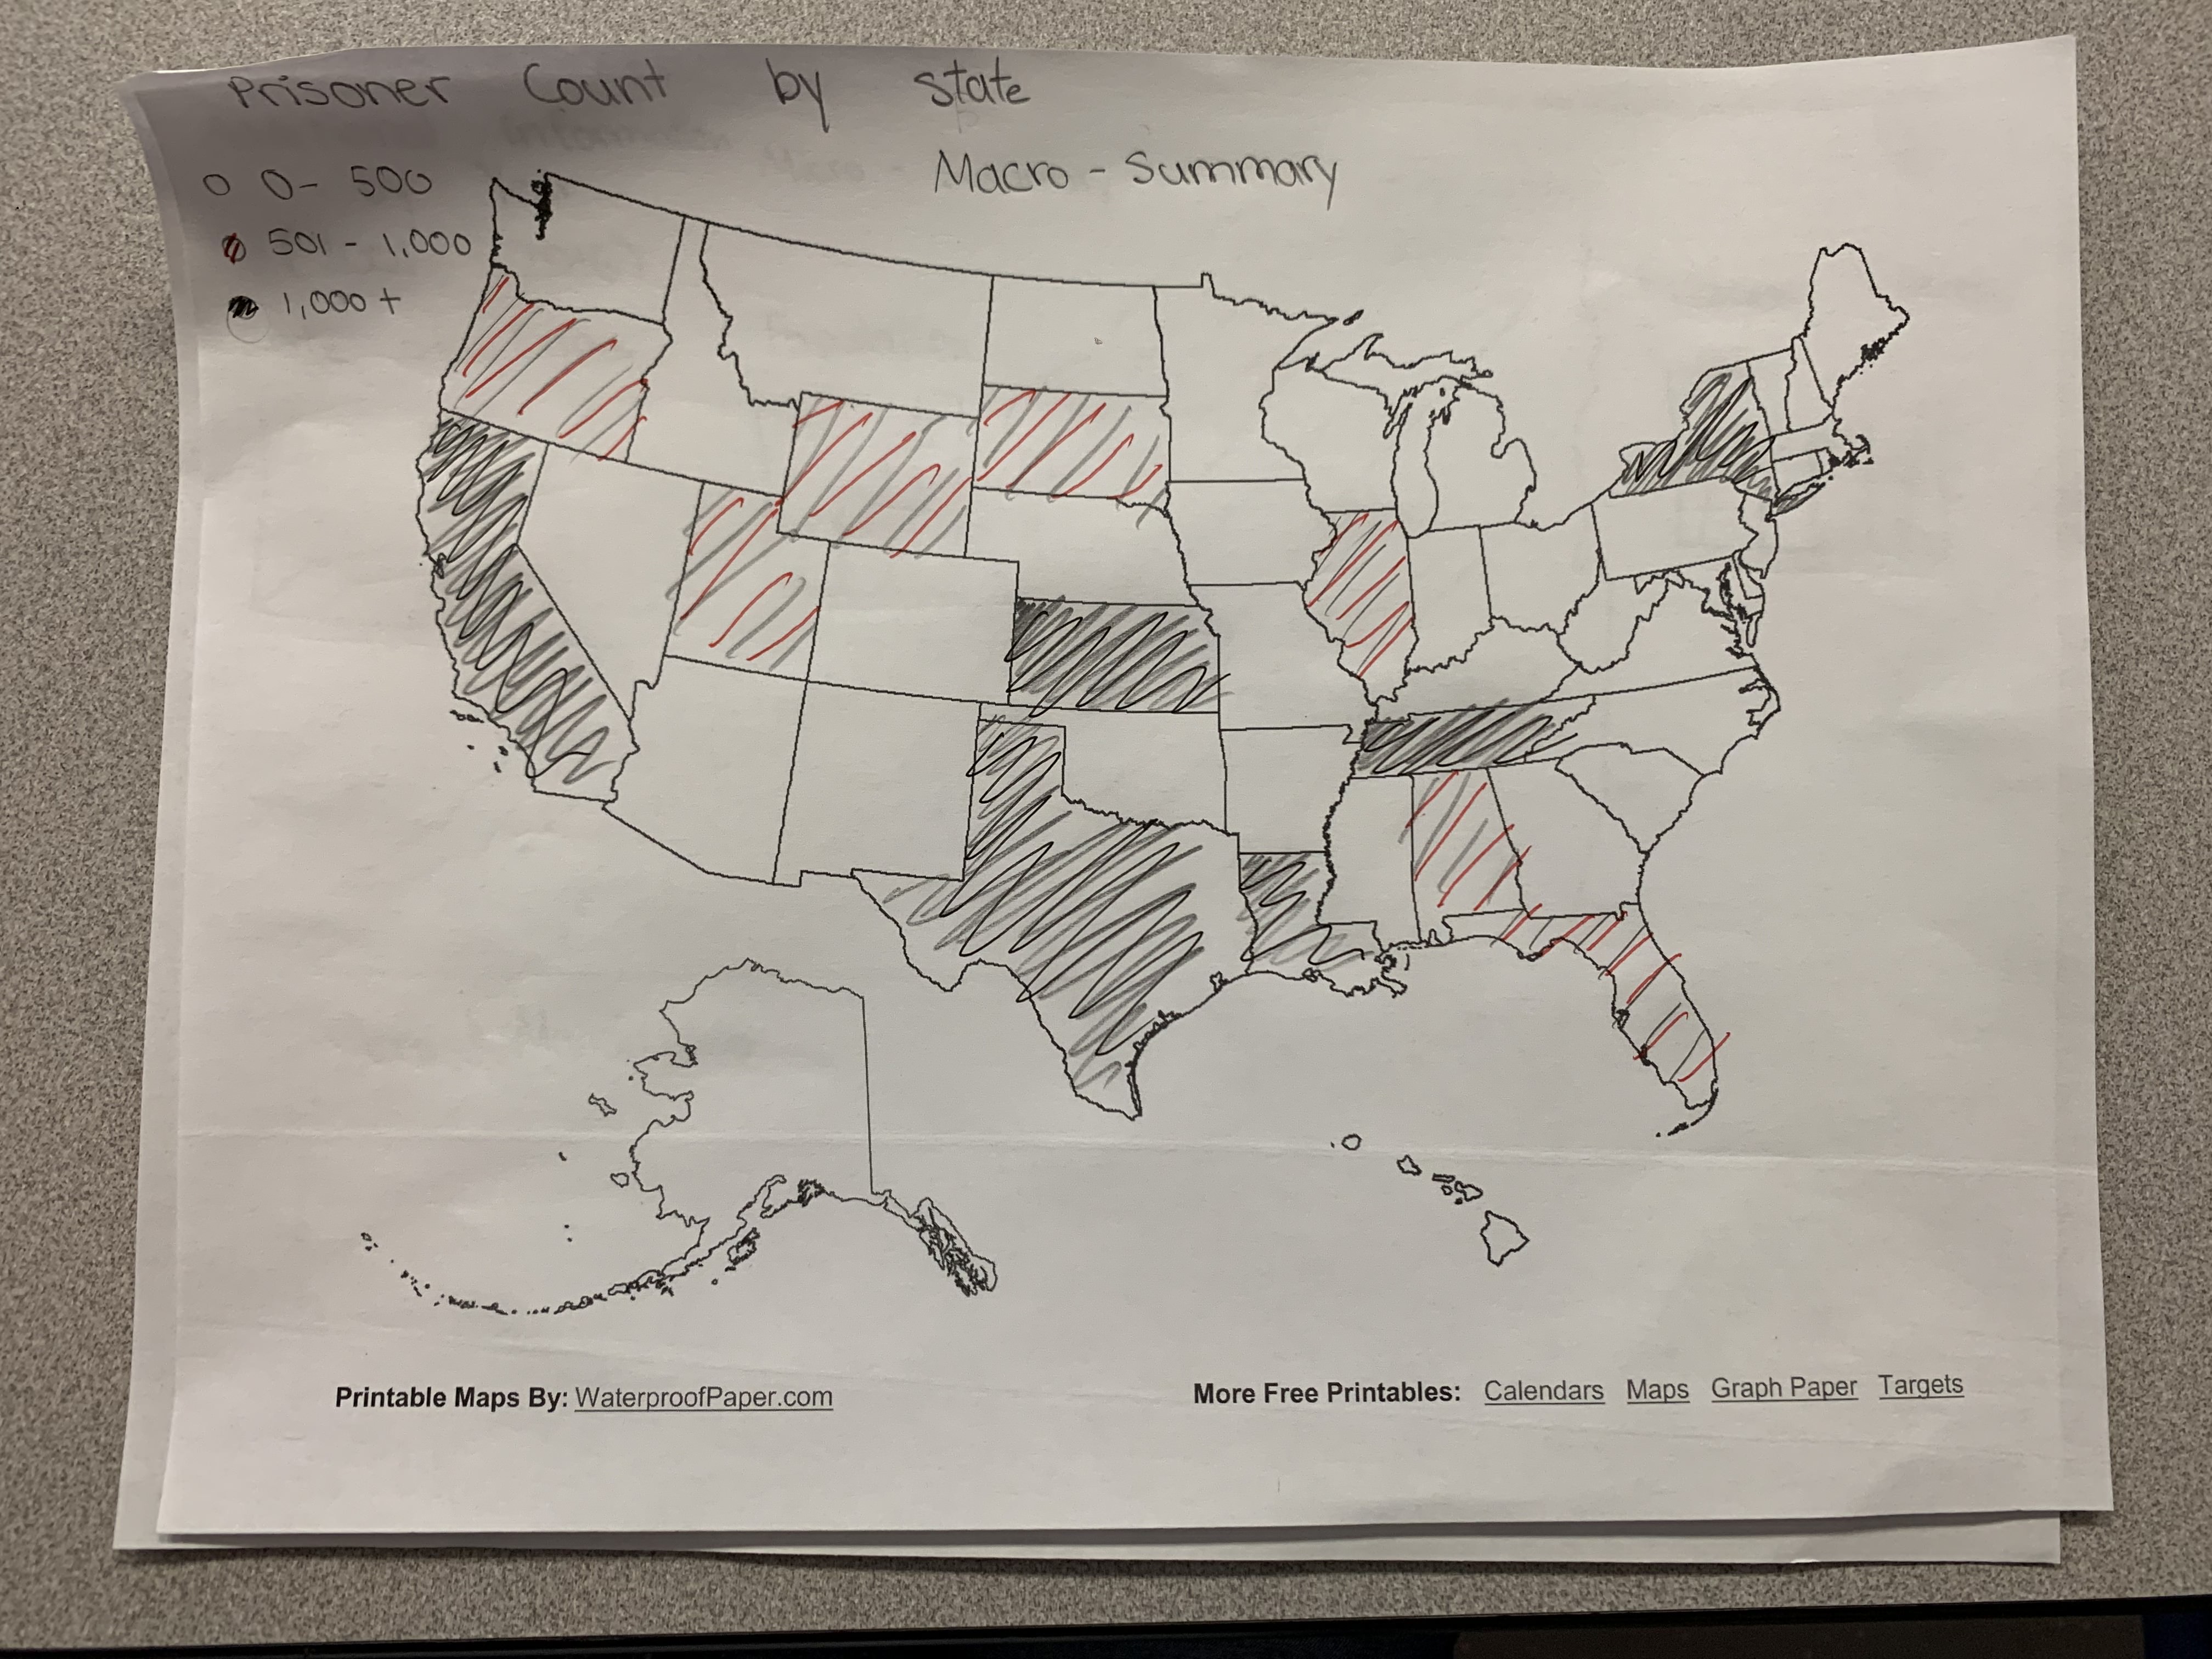 Prisoner Count by State
Macro - Summary
0 - 500
501 - 1,000
1,000 +
Printable Maps By: WaterproofPaper.com
More Free Printables: Calendars Maps Graph Paper Targets